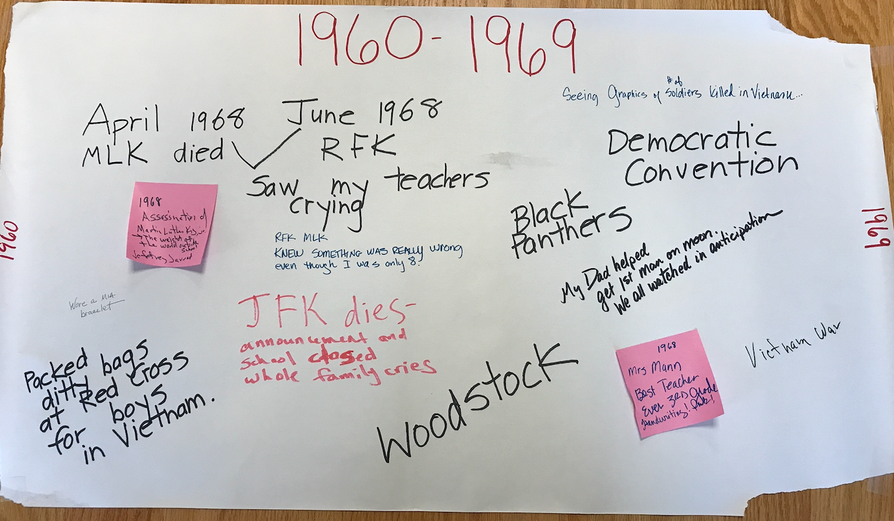 1960-1969
Seeing Graphics of # of Soldiers killed in Vietnam...
April 1968
MLK died
June 1968
RFK
Saw my teachers
crying
Democratic
Convention
Black
Panthers
1968
Assassination of
Martin Luther King
the weight of
the world
RFK MLK
KNEW SOMETHING WAS REALLY wrong
even though I was only 8.
My Dad helped
get 1st man on moon.
We all watched in anticipation
1960
1969
Wore a MIA
bracelet
JFK dies-
announcement and
school closed
whole family cries
Packed bags
ditty bags
at Red Cross
for boys
in Vietnam.
WOODSTOCK
1968
Mrs Mann
Best Teacher
Ever 3RD Grade
Handwriting!
Vietnam War